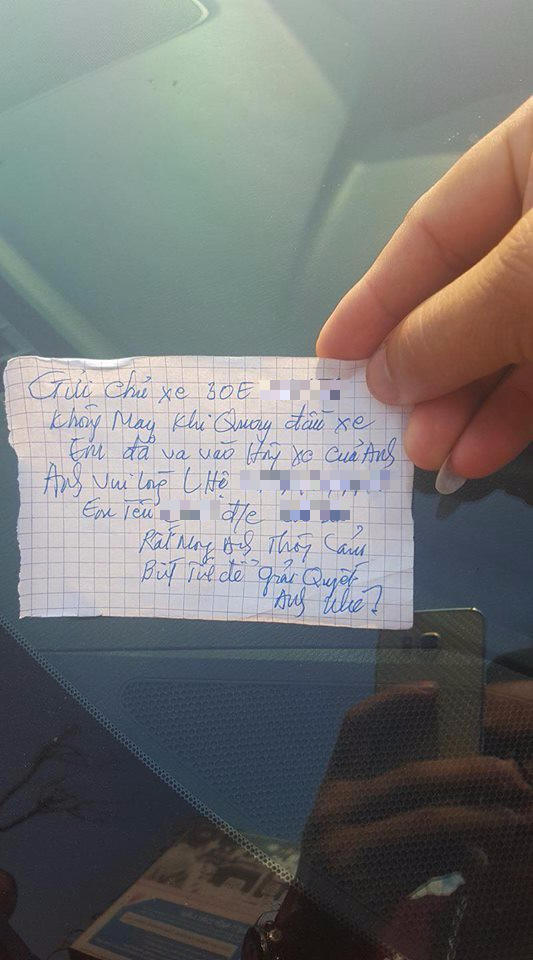 Gửi chủ xe 30E
Không May Khi Quay đầu xe
Em đã va vào xe của Anh
Anh Vui lòng LHệ
Em Tên đ/c
Rất Mong Anh Thông Cảm
để giải Quyết
Anh Nhé?